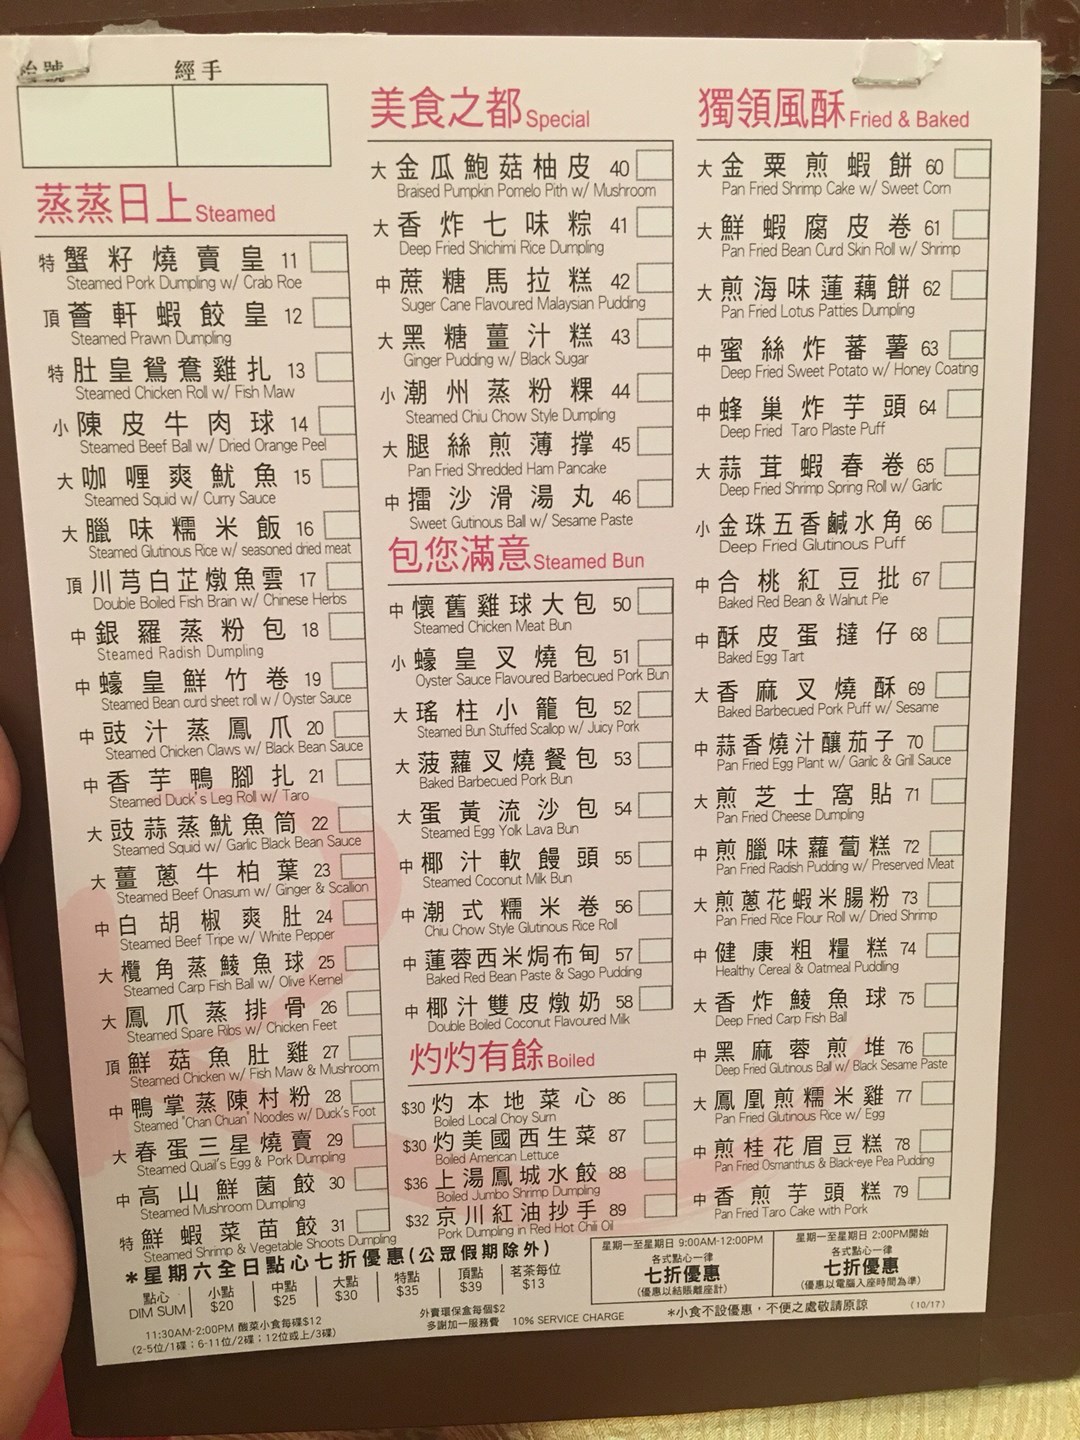 經手
蒸蒸日上 Steamed
特 蟹籽燒賣皇 11
Steamed Pork Dumpling w/ Crab Roe
頂 薈軒蝦餃皇 12
Steamed Prawn Dumpling
特 肚皇鴛鴦雞扎 13
Steamed Chicken Roll w/ Fish Maw
小 陳皮牛肉球 14
Steamed Beef Ball w/ Dried Orange Peel
大 咖喱爽魷魚 15
Steamed Squid w/ Curry Sauce
大 臘味糯米飯 16
Steamed Glutinous Rice w/ seasoned dried meat
頂 川芎白芷燉魚雲 17
Double Boiled Fish Brain w/ Chinese Herbs
中 銀羅蒸粉包 18
Steamed Radish Dumpling
中 蠔皇鮮竹卷 19
Steamed Bean curd sheet roll w/ Oyster Sauce
中 豉汁蒸鳳爪 20
Steamed Chicken Claws w/ Black Bean Sauce
中 香芋鴨腳扎 21
Steamed Duck's Leg Roll w/ Taro
大 豉蒜蒸魷魚筒 22
Steamed Squid w/ Garlic Black Bean Sauce
大 薑蔥牛柏葉 23
Steamed Beef Onasum w/ Ginger & Scallion
中 白胡椒爽肚 24
Steamed Beef Tripe w/ White Pepper
大 欖角蒸鯪魚球 25
Steamed Carp Fish Ball w/ Olive Kernel
大 鳳爪蒸排骨 26
Steamed Spare Ribs w/ Chicken Feet
頂 鮮菇魚肚雞 27
Steamed Chicken w/ Fish Maw & Mushroom
中 鴨掌蒸陳村粉 28
Steamed "Chan Chuan" Noodles w/ Duck's Foot
大 春蛋三星燒賣 29
Steamed Quail's Egg & Pork Dumpling
中 高山鮮菌餃 30
Steamed Mushroom Dumping
特 鮮蝦菜苗餃 31
Steamed Shrimp & Vegetable Shoots Dumpling
美食之都 Special
大 金瓜鮑菇柚皮 40
Braised Pumpkin Pomelo Pith w/ Mushroom
大 香炸七味粽 41
Deep Fried Shichimi Rice Dumpling
中 蔗糖馬拉糕 42
Suger Cane Flavoured Malaysian Pudding
大 黑糖薑汁糕 43
Ginger Pudding w/ Black Sugar
小 潮州蒸粉粿 44
Steamed Chiu Chow Style Dumpling
大 腿絲煎薄撑 45
Pan Fried Shredded Ham Pancake
中 擂沙滑湯丸 46
Sweet Gutinous Ball w/ Sesame Paste
包您滿意 Steamed Bun
中 懷舊雞球大包 50
Steamed Chicken Meat Bun
小 蠔皇叉燒包 51
Oyster Sauce Flavoured Barbecued Pork Bun
大 瑤柱小籠包 52
Steamed Bun Stuffed Scallop w/ Juicy Pork
大 菠蘿叉燒餐包 53
Baked Barbecued Pork Bun
大 蛋黃流沙包 54
Steamed Egg Yolk Lava Bun
中 椰汁軟饅頭 55
Steamed Coconut Milk Bun
中 潮式糯米卷 56
Chiu Chow Style Glutinous Rice Roll
中 蓮蓉西米焗布甸 57
Baked Red Bean Paste & Sago Pudding
中 椰汁雙皮燉奶 58
Double Boiled Coconut Flavoured Milk
灼灼有餘 Boiled
$30 灼本地菜心 86
Boiled Local Choy Sum
$30 灼美國西生菜 87
Boiled American Lettuce
$36 上湯鳳城水餃 88
Boiled Jumbo Shrimp Dumpling
$32 京川紅油抄手 89
Pork Dumpling in Red Hot Chili Oil
獨領風酥 Fried & Baked
大 金粟煎蝦餅 60
Pan Fried Shrimp Cake w/ Sweet Corn
大 鮮蝦腐皮卷 61
Pan Fried Bean Curd Skin Roll w/ Shrimp
大 煎海味蓮藕餅 62
Pan Fried Lotus Patties Dumpling
中 蜜絲炸蕃薯 63
Deep Fried Sweet Potato w/ Honey Coating
中 蜂巢炸芋頭 64
Deep Fried Taro Plaste Puff
大 蒜茸蝦春卷 65
Deep Fried Shrimp Spring Roll w/ Garlic
小 金珠五香鹹水角 66
Deep Fried Glutinous Puff
中 合桃紅豆批 67
Baked Red Bean & Walnut Pie
中 酥皮蛋撻仔 68
Baked Egg Tart
大 香麻叉燒酥 69
Baked Barbecued Pork Puff w/ Sesame
中 蒜香燒汁釀茄子 70
Pan Fried Egg Plant w/ Garlic & Grill Sauce
大 煎芝士窩貼 71
Pan Fried Cheese Dumpling
中 煎臘味蘿蔔糕 72
Pan Fried Radish Pudding w/ Preserved Meat
大 煎蔥花蝦米腸粉 73
Pan Fried Rice Flour Roll w/ Dried Shrimp
中 健康粗糧糕 74
Healthy Cereal & Oatmeal Pudding
大 香炸鯪魚球 75
Deep Fried Carp Fish Ball
中 黑麻蓉煎堆 76
Deep Fried Glutinous Ball w/ Black Sesame Paste
大 鳳凰煎糯米雞 77
Pan Fried Glutinous Rice w/ Egg
中 煎桂花眉豆糕 78
Pan Fried Osmanthus & Black-eye Pea Pudding
中 香煎芋頭糕 79
Pan Fried Taro Cake with Pork
*星期六全日點心七折優惠(公眾假期除外)
點心 DIM SUM | 小點 $20 | 中點 $25 | 大點 $30 | 特點 $35 | 頂點 $39 | 茗茶每位 $13
11:30AM-2:00PM 酸菜小食每碟$12
(2-5位/1碟；6-11位/2碟；12位或上/3碟)
外賣環保盒每個$2
多謝加一服務費 10% SERVICE CHARGE
星期一至星期日 9:00AM-12:00PM
各式點心一律
七折優惠
(優惠以結賬離座計)
星期一至星期日 2:00PM開始
各式點心一律
七折優惠
(優惠以電腦入座時間為準)
*小食不設優惠，不便之處敬請原諒
(10/17)